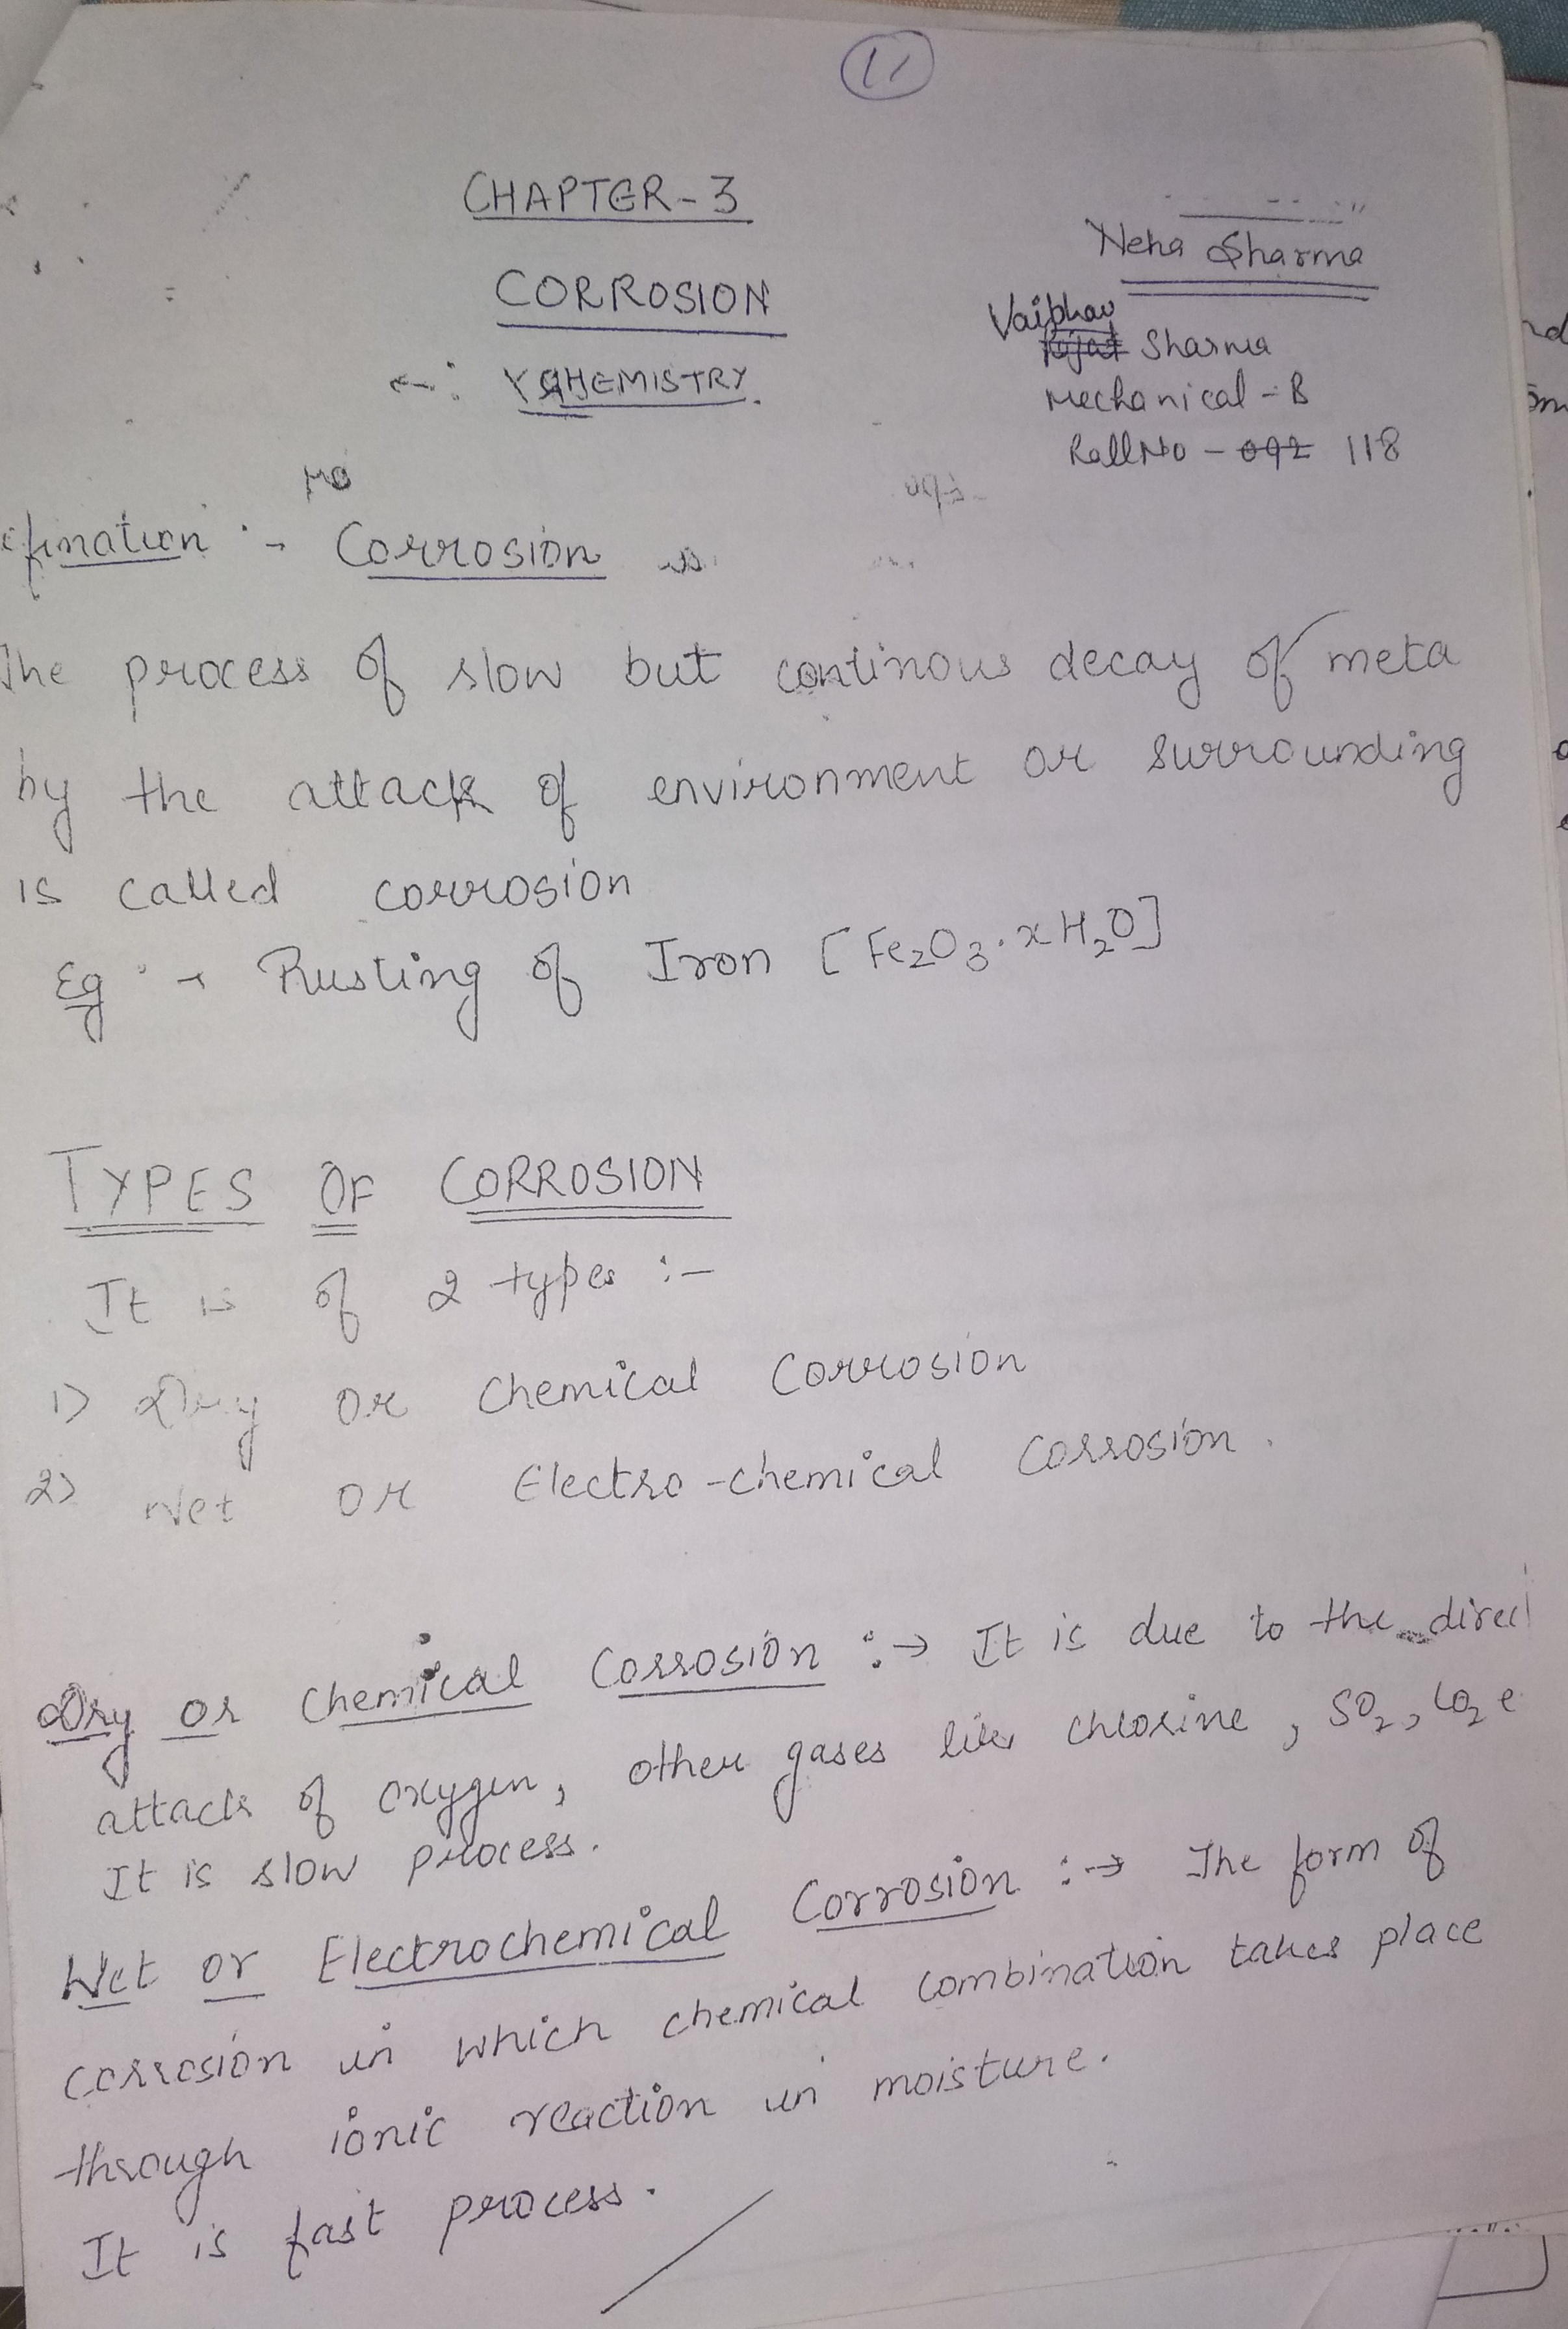 11
CHAPTER-3
CORROSION
CHEMISTRY.
Neha Sharma
Vaibhav
Rajat Sharma
Mechanical-B
Roll No - 092 118
efination :- Corrosion is
The process of slow but continous decay of meta
by the attack of environment or surrounding
is called corrosion
Eg :→ Rusting of Iron [Fe₂O₃.xH₂O]
TYPES OF CORROSION
It is of 2 types :-
1) Dry or Chemical Corrosion
2) Wet or Electro-chemical Corrosion.
Dry or Chemical Corrosion :→ It is due to the direct
attack of oxygen, other gases like chlorine, SO₂, CO₂ e
It is slow process.
Wet or Electrochemical Corrosion :→ The form of
corrosion in which chemical combination takes place
through ionic reaction in moisture.
It is fast process.